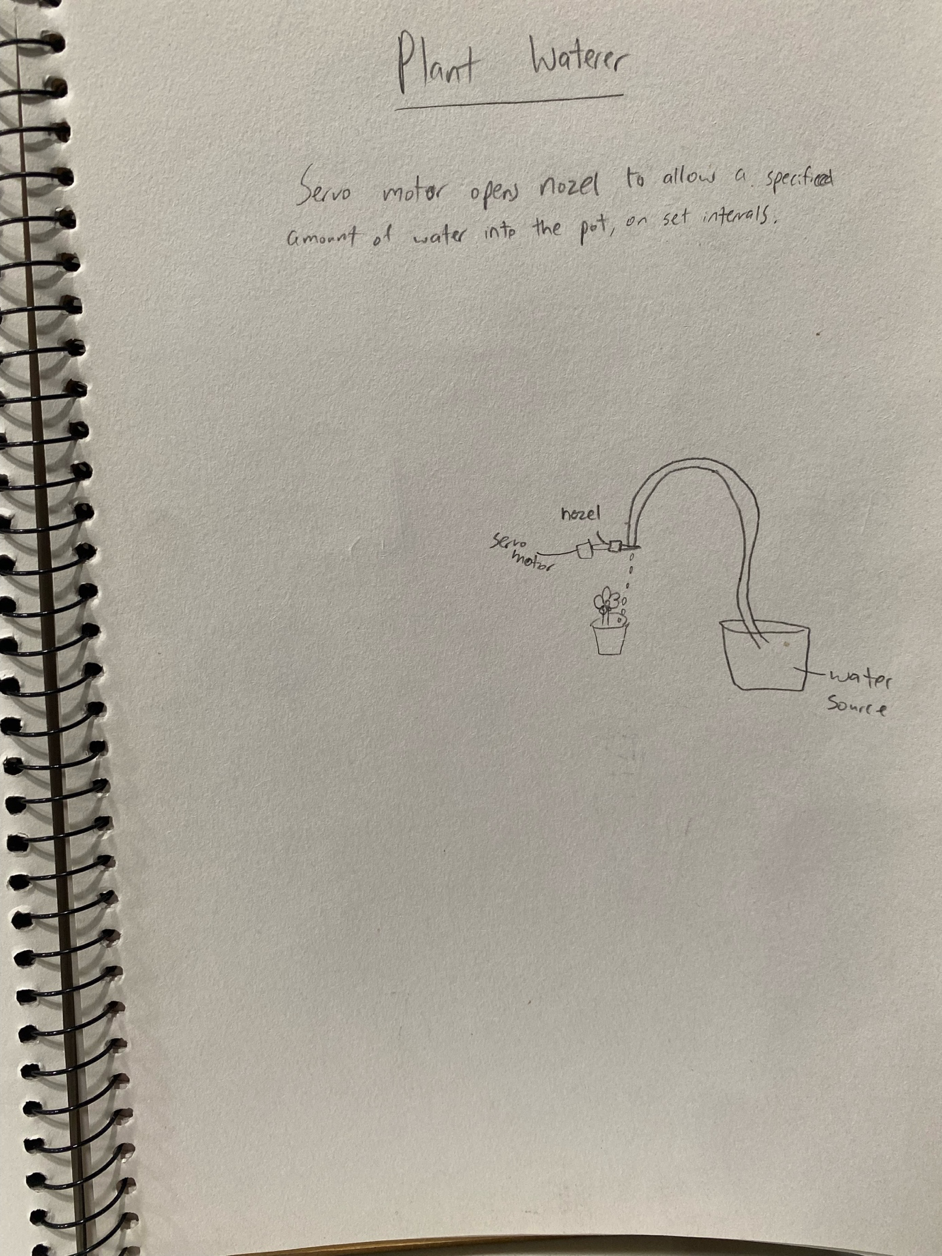 Plant Waterer
Servo motor opens nozel to allow a specified
amount of water into the pot, on set intervals.
nozel
servo
motor
water
source